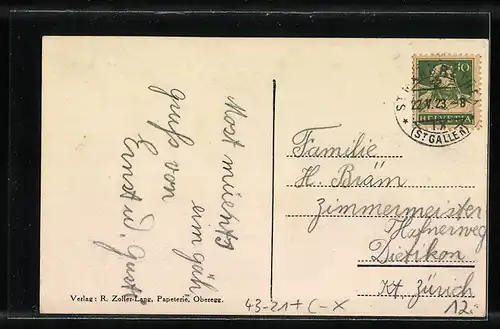 Most müehts
em gäh
gruss von
Ernst u. Gust
Verlag: R. Zoller-Lang, Papeterie, Oberegg.
10
HELVETIA
22.V.23.-8
(ST. GALLEN)
Familie
H. Bräm
Zimmermeister
Hafnerweg
Dietikon
Kt. Zürich
43-21+C-X
12.-